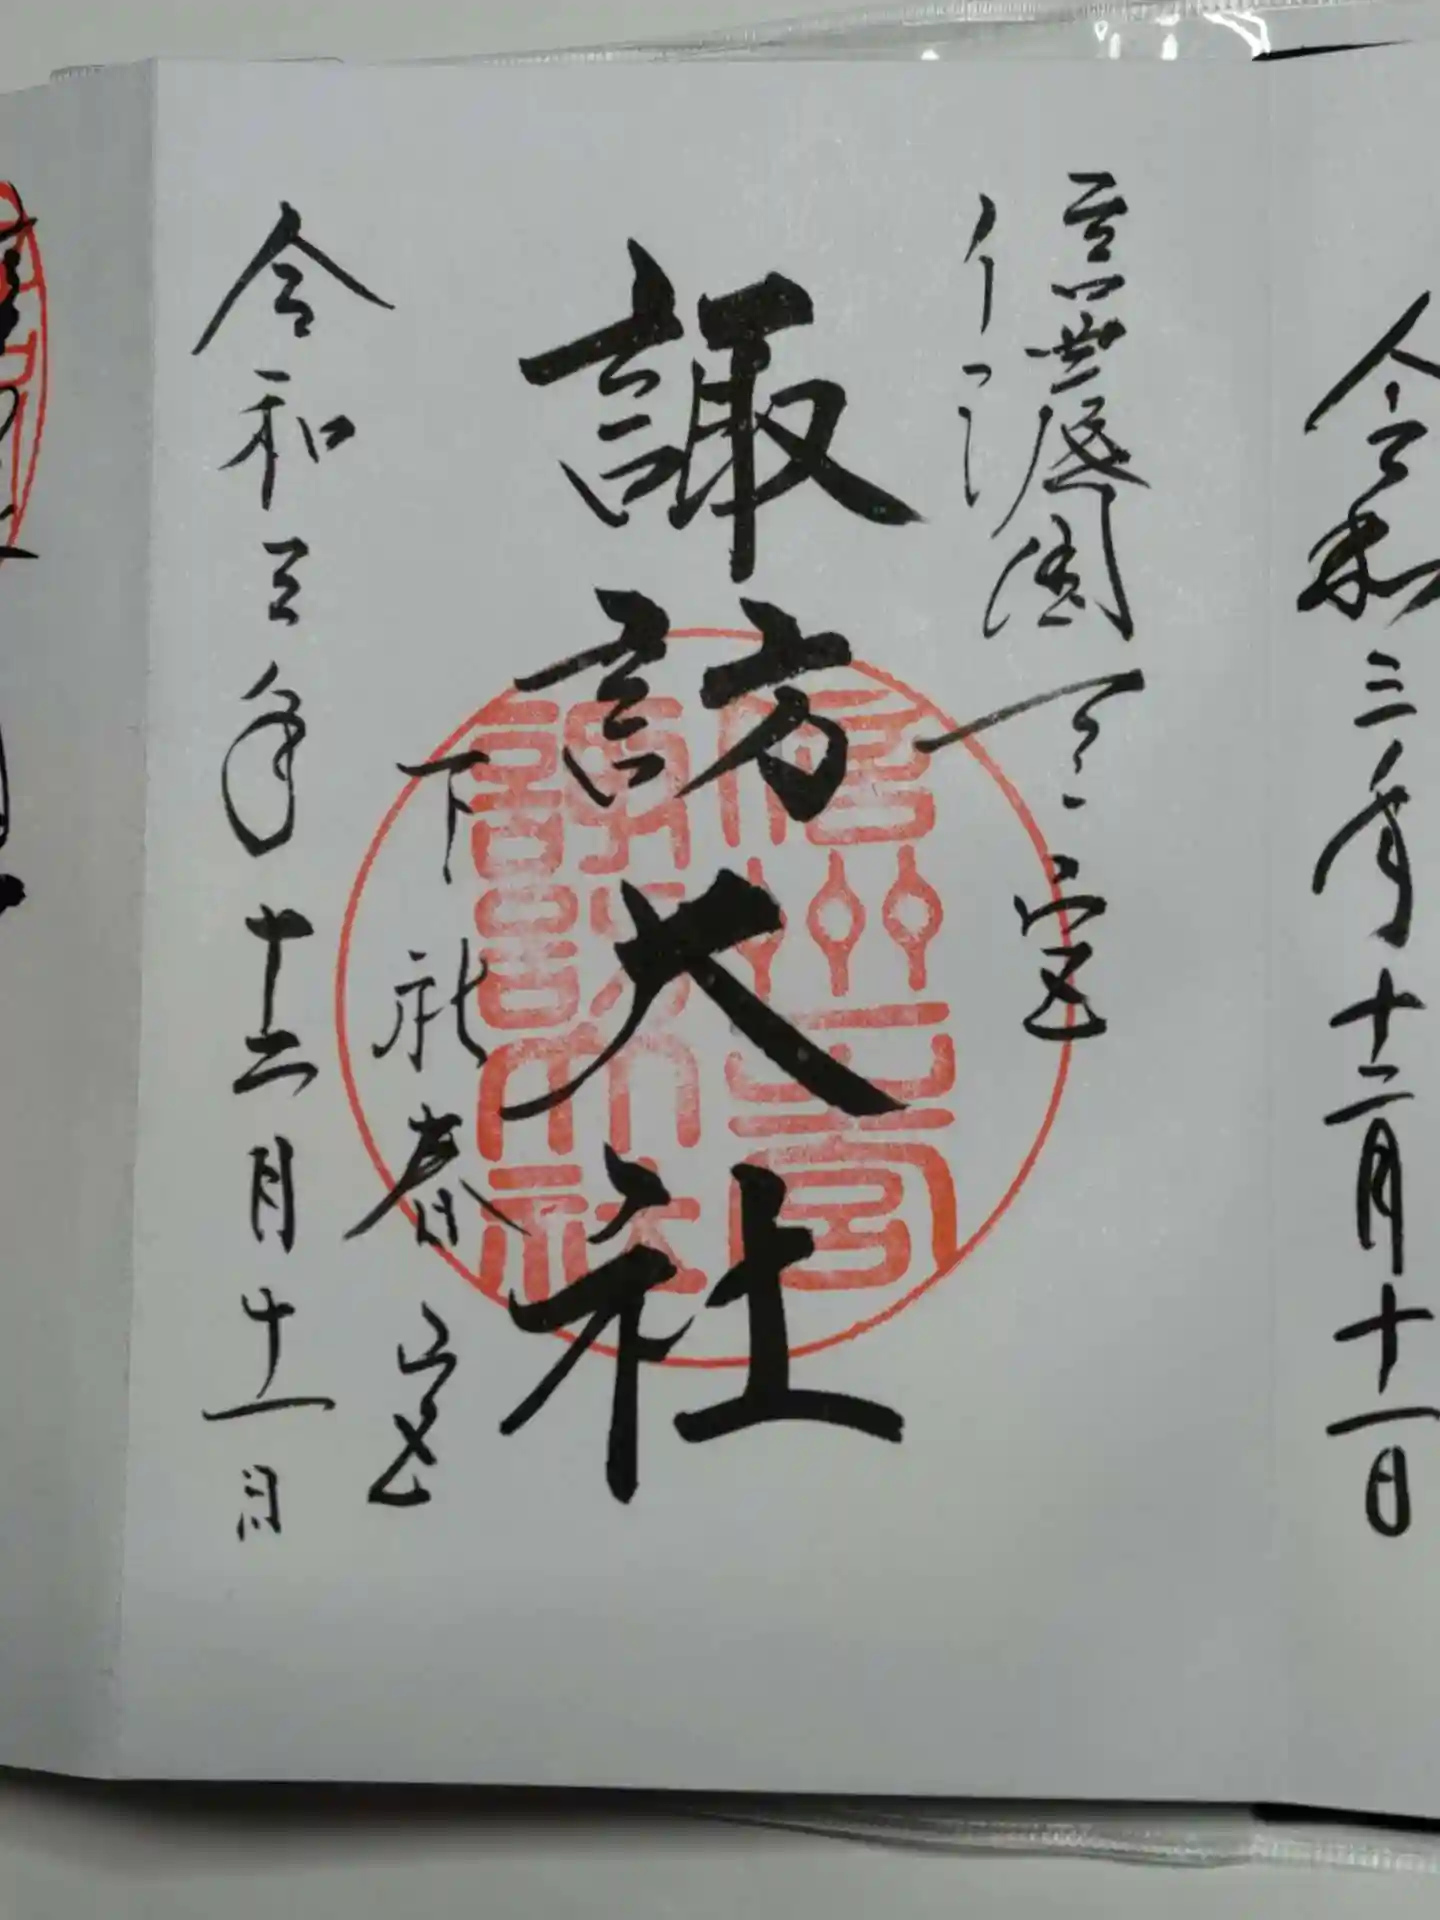 令和三年十二月十一日
信濃國一之宮
諏訪大社
下社春宮
令和三年十二月十一日
信州一之宮
諏訪大社